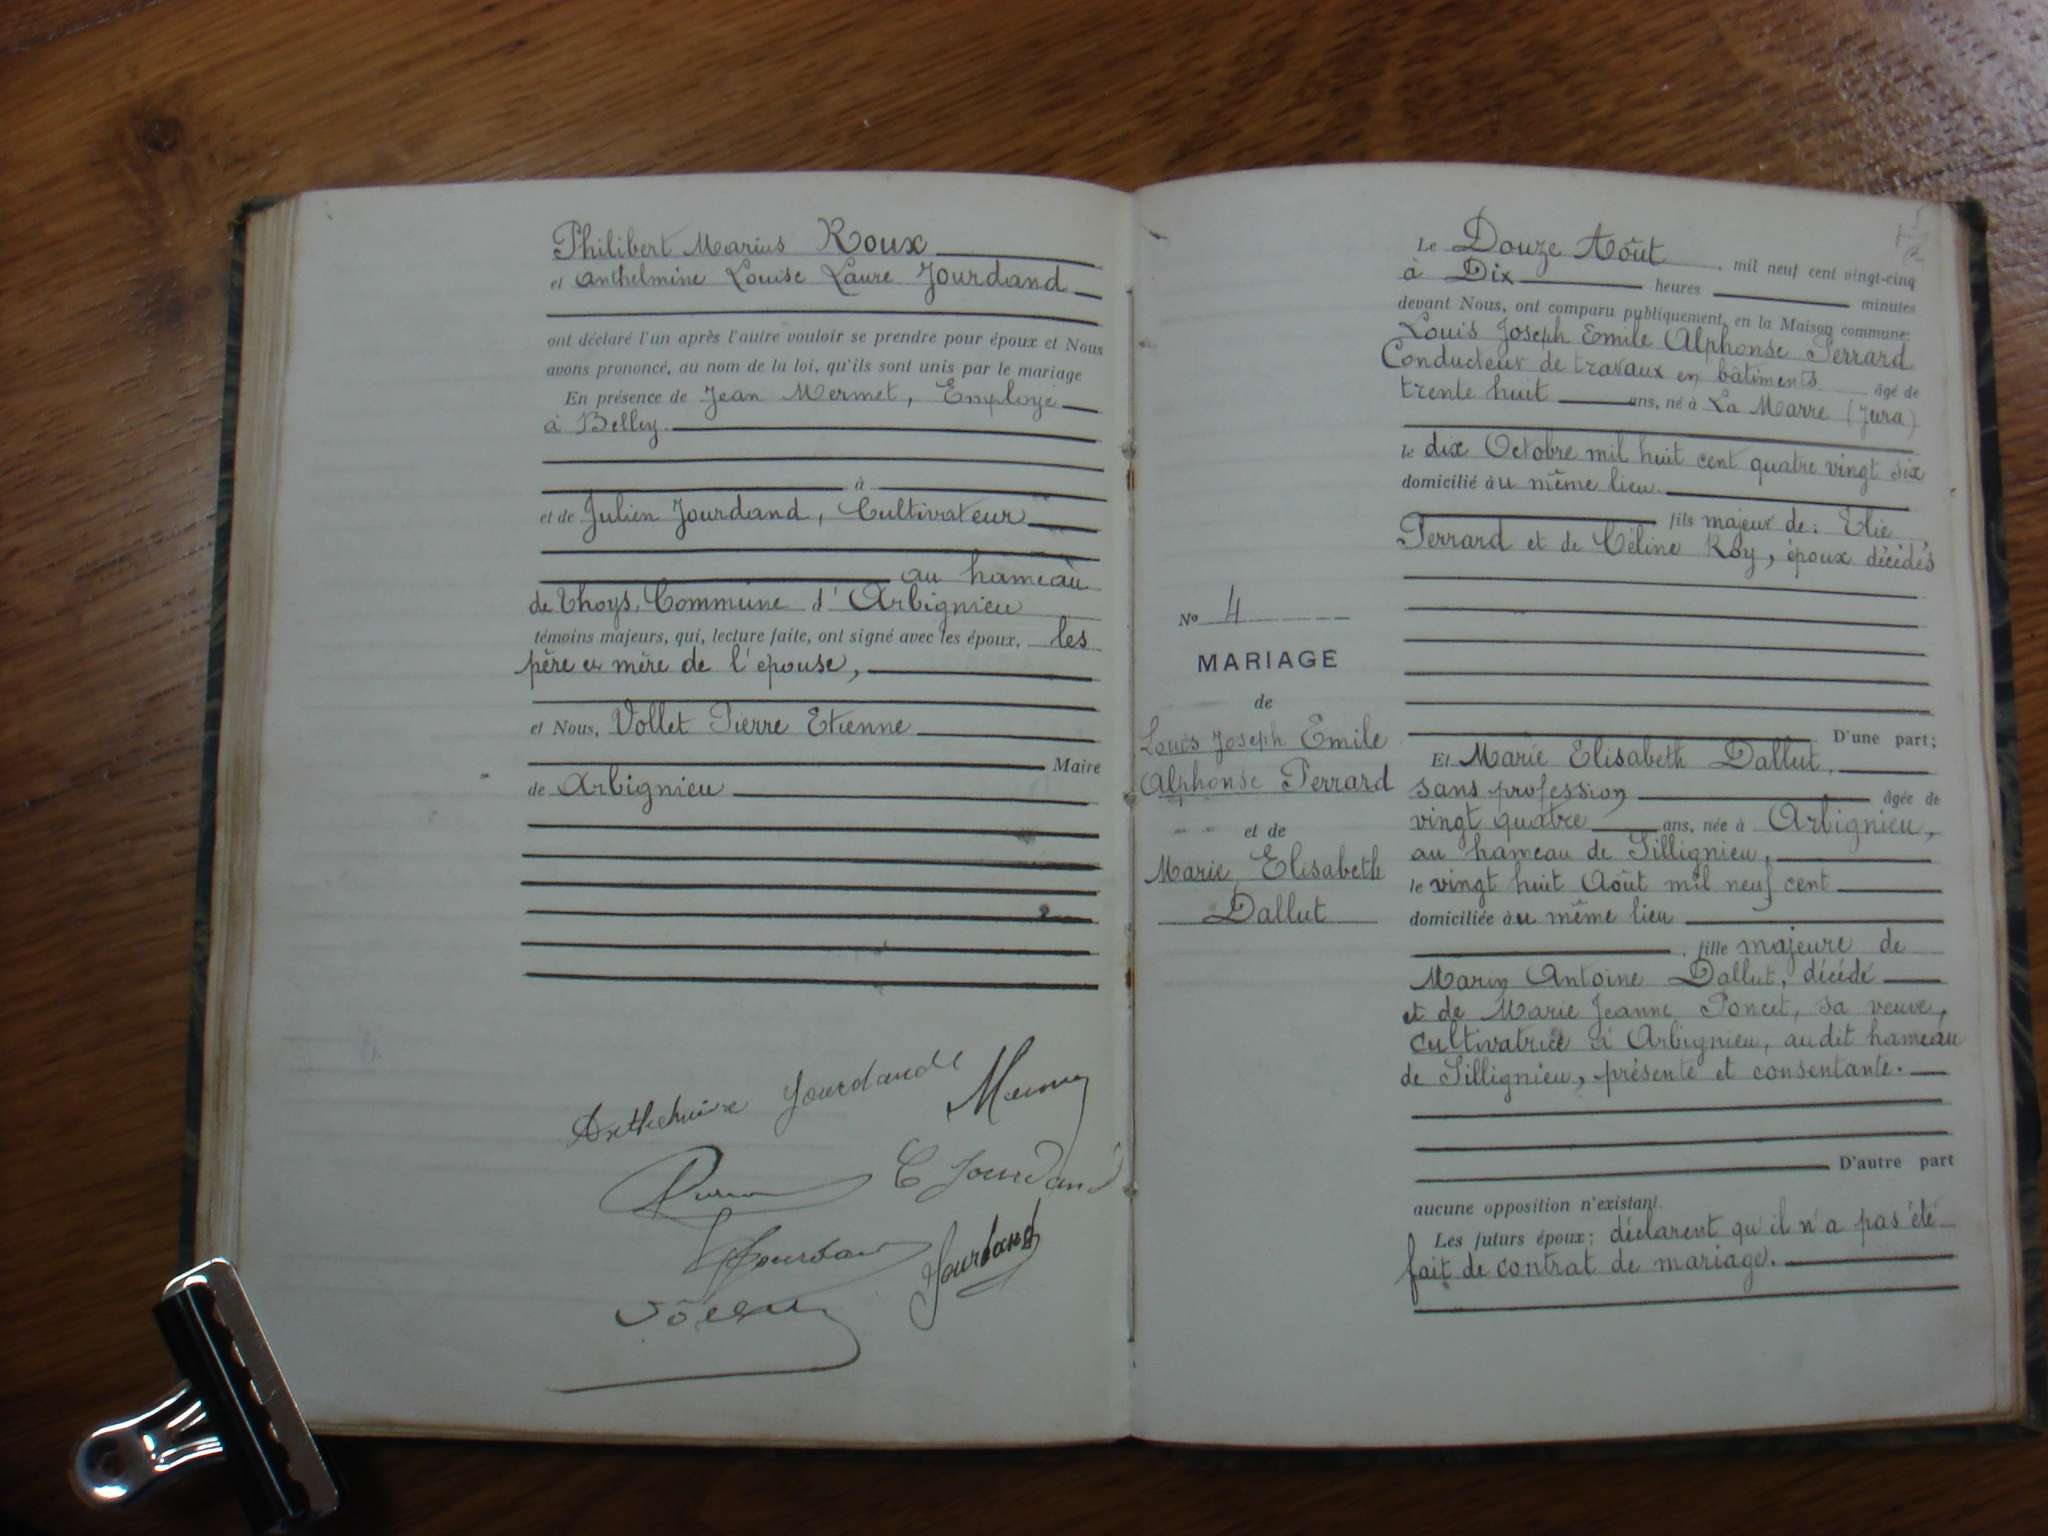 Philibert Marius Roux
et Anthelmine Louise Laure Jourdand
ont déclaré l'un après l'autre vouloir se prendre pour époux et Nous
avons prononcé, au nom de la loi, qu'ils sont unis par le mariage
En présence de Jean Mermet, Employé
à Belley
à
et de Julien Jourdand, Cultivateur
au hameau
de Thoys, Commune d'Arbignieu
témoins majeurs, qui, lecture faite, ont signé avec les époux, les
père et mère de l'épouse,
et Nous, Vollet Pierre Etienne
Maire
de Arbignieu
Jourdand
C Jourdand
Jourdand
Le Douze Août, mil neuf cent vingt-cinq
à Dix heures minutes
devant Nous, ont comparu publiquement, en la Maison commune:
Louis Joseph Emile Alphonse Perrard
Conducteur de travaux en bâtiments âgé de
trente huit ans, né à La Marre (Jura)
le dix Octobre mil huit cent quatre vingt six
domicilié au même lieu.
fils majeur de: Elie
Perrard et de Céline Roy, époux décédés
No 4
MARIAGE
de
Louis Joseph Emile
Alphonse Perrard
et de
Marie Elisabeth
Dallut
D'une part;
Et Marie Elisabeth Dallut,
sans profession âgée de
vingt quatre ans, née à Arbignieu,
au hameau de Sillignieu,
le vingt huit Août mil neuf cent
domiciliée au même lieu
, fille majeure de
Marin Antoine Dallut, décédé
et de Marie Jeanne Poncet, sa veuve,
cultivatrice à Arbignieu, audit hameau
de Sillignieu, présente et consentante.
D'autre part
aucune opposition n'existant.
Les futurs époux; déclarent qu'il n'a pas été
fait de contrat de mariage.